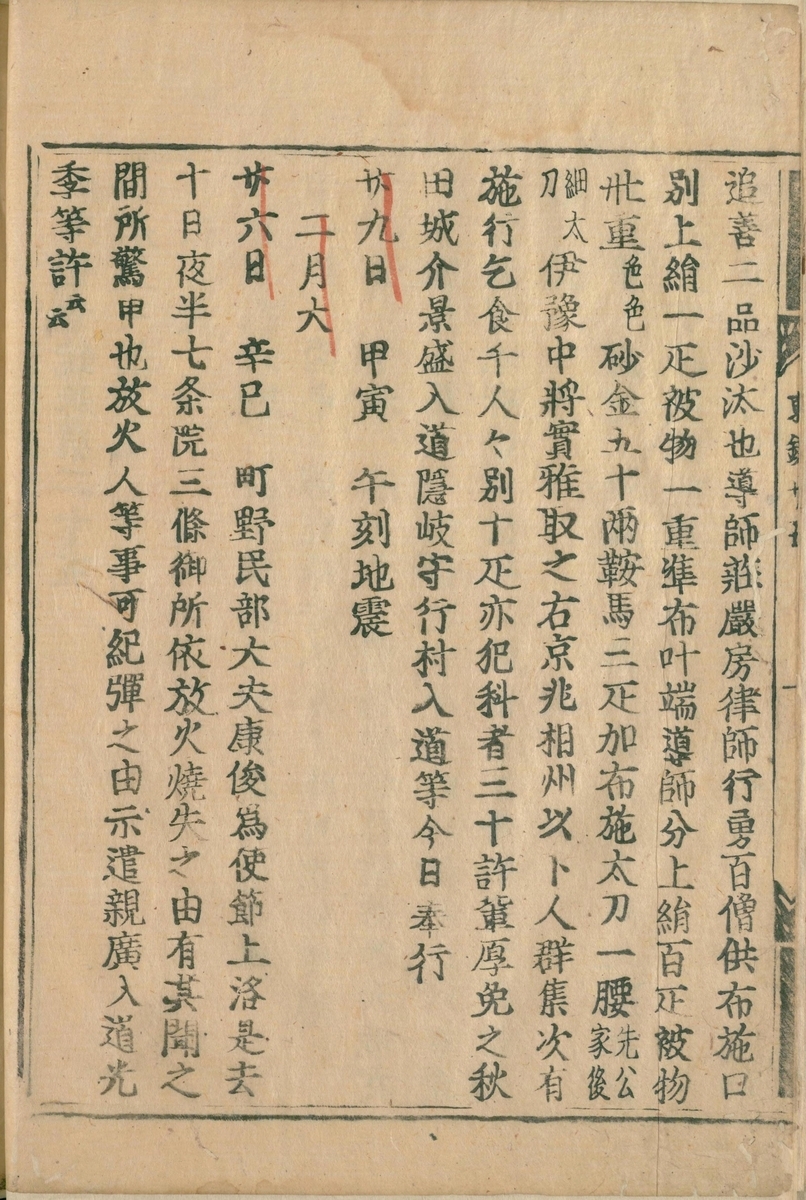 追善二品沙汰也導師莊嚴房律師行勇百僧供布施口
別上絹一疋被物一重準布叶端導師分上絹百疋被物
卅重色色砂金五十兩鞍馬三疋加布施太刀一腰先公家後
細太刀伊豫中將實雅取之右京兆相州以卜人群集次有
施行乞食千人々別十疋亦犯科者三十許輩厚免之秋
田城介景盛入道隱岐守行村入道等今日奉行
廿九日　甲寅　午刻地震
二月大
廿六日　辛巳　町野民部大夫康俊爲使節上洛是去
十日夜半七条院三條御所依放火燒失之由有其聞之
間所驚甲也放火人等事可紀彈之由示遣親廣入道光
季等許云云